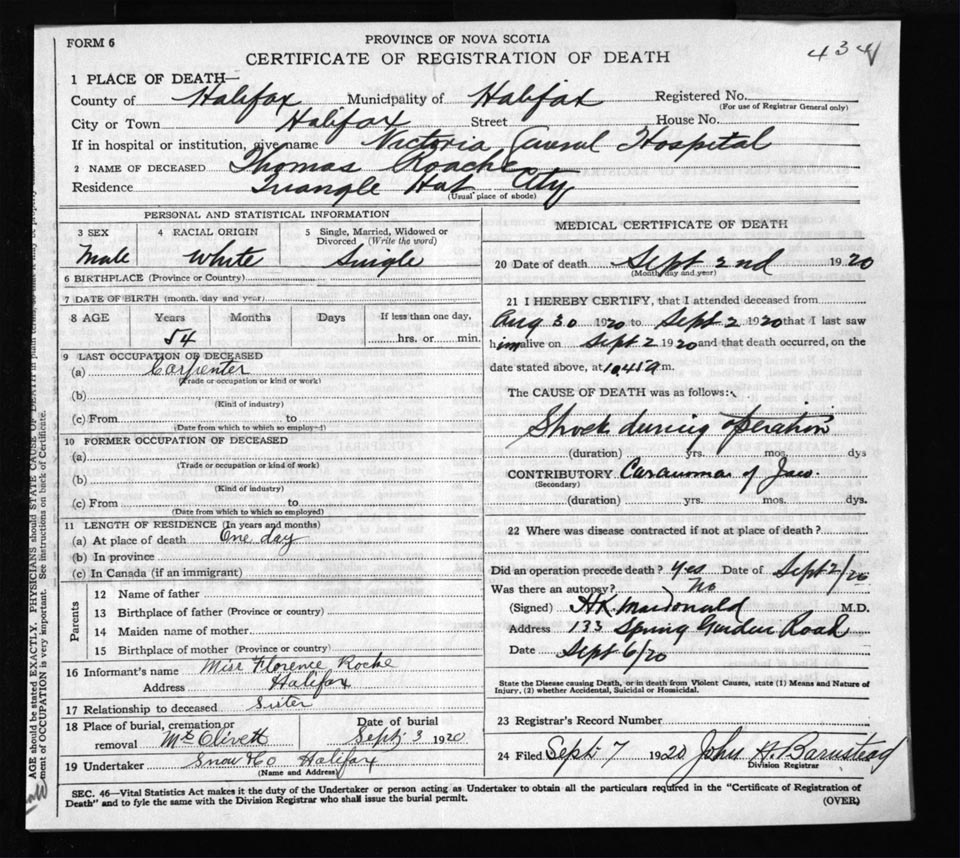 FORM 6
PROVINCE OF NOVA SCOTIA
CERTIFICATE OF REGISTRATION OF DEATH
434
1 PLACE OF DEATH—
County of Halifax Municipality of Halifax Registered No.
(For use of Registrar General only)
City or Town Halifax Street House No.
If in hospital or institution, give name Victoria General Hospital
2 NAME OF DECEASED Thomas Roache
Residence Triangle Hat City
(Usual place of abode)
PERSONAL AND STATISTICAL INFORMATION
3 SEX 4 RACIAL ORIGIN 5 Single, Married, Widowed or Divorced (Write the word)
Male White Single
6 BIRTHPLACE (Province or Country)
7 DATE OF BIRTH (month, day and year)
8 AGE Years Months Days If less than one day,
54 hrs. or min.
9 LAST OCCUPATION OF DECEASED
(a) Carpenter
(Trade or occupation or kind or work)
(b)
(Kind of industry)
(c) From to
(Date from which to which so employed)
10 FORMER OCCUPATION OF DECEASED
(a)
(Trade or occupation or kind of work)
(b)
(Kind of industry)
(c) From to
(Date from which to which so employed)
11 LENGTH OF RESIDENCE (In years and months)
(a) At place of death One day
(b) In province
(c) In Canada (if an immigrant)
Parents
12 Name of father
13 Birthplace of father (Province or country)
14 Maiden name of mother
15 Birthplace of mother (Province or country)
16 Informant's name Miss Florence Roche
Address Halifax
17 Relationship to deceased Sister
18 Place of burial, cremation or removal Mt Olivett Date of burial Sept 3 1920
19 Undertaker Snow & Co Halifax
(Name and Address)
MEDICAL CERTIFICATE OF DEATH
20 Date of death Sept 2nd 1920
(Month, day and year)
21 I HEREBY CERTIFY, that I attended deceased from
Aug 30 1920 to Sept 2 1920 that I last saw
him alive on Sept 2 1920 and that death occurred, on the
date stated above, at 10.45 a m.
The CAUSE OF DEATH was as follows:
Shock during operation
(duration) yrs. mos. dys
CONTRIBUTORY Carcinoma of Jaw.
(Secondary)
(duration) yrs. mos. dys.
22 Where was disease contracted if not at place of death?
Did an operation precede death? Yes Date of Sept 2/20
Was there an autopsy? No
(Signed) H.K. MacDonald M.D.
Address 133 Spring Garden Road
Date Sept 6/20
State the Disease causing Death, or in death from Violent Causes, state (1) Means and Nature of
Injury, (2) whether Accidental, Suicidal or Homicidal.
23 Registrar's Record Number
24 Filed Sept 7 1920 John H. Barnstead
Division Registrar
SEC. 46—Vital Statistics Act makes it the duty of the Undertaker or person acting as Undertaker to obtain all the particulars required in the "Certificate of Registration of
Death" and to fyle the same with the Division Registrar who shall issue the burial permit.
(OVER)
AGE should be stated EXACTLY. PHYSICIANS should STATE CAUSE OF DEATH in plain terms,
ment of OCCUPATION is very important. See instructions on back of Certificate.